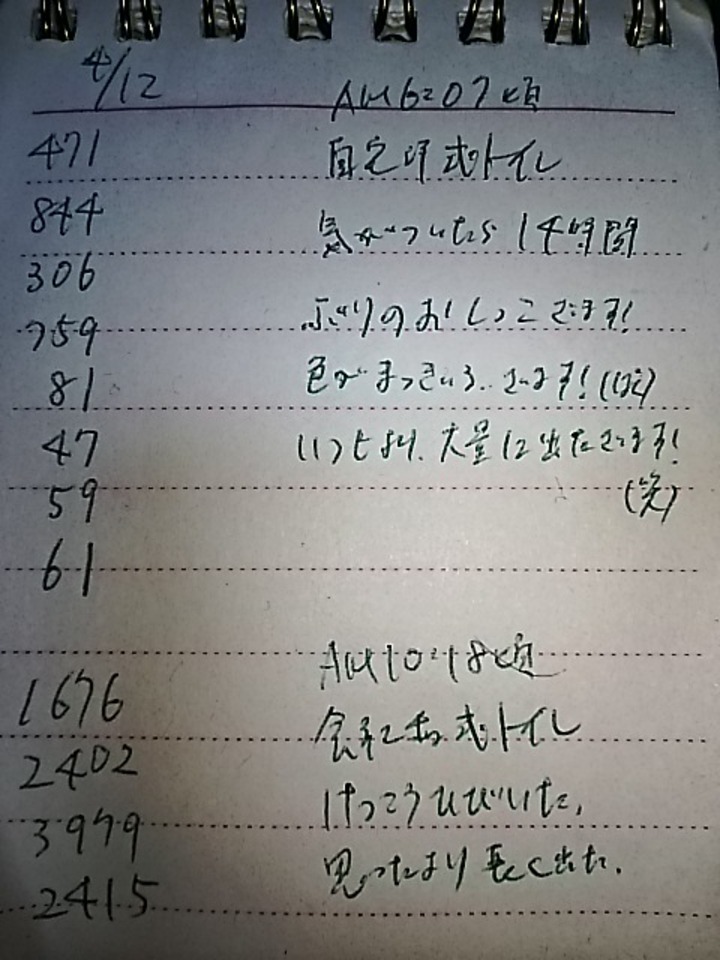 4/12
AM6:07頃
471
自宅洋式トイレ
844
気がついたら14時間
306
ぶりのおしっこでます!
759
色がまっきいろ..でます!(泣)
81
いつもより、大量に出たでます!
47
(笑)
59
61
AM10:18頃
1676
会社で和式トイレ
2402
けっこうひびいた。
3979
思ったより長く出た。
2415